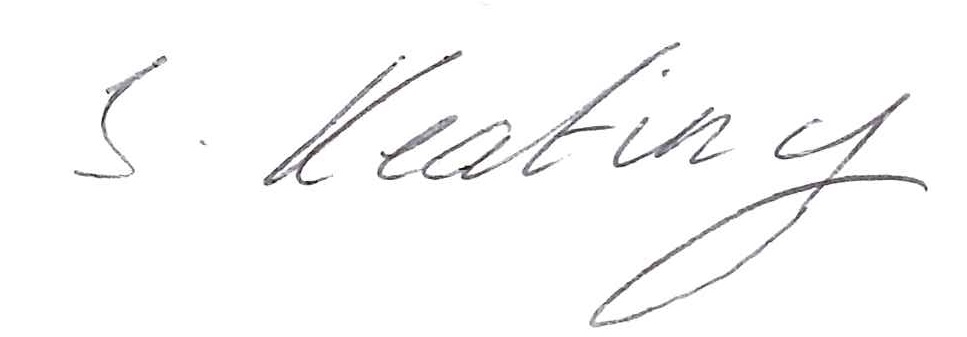 S. Keating